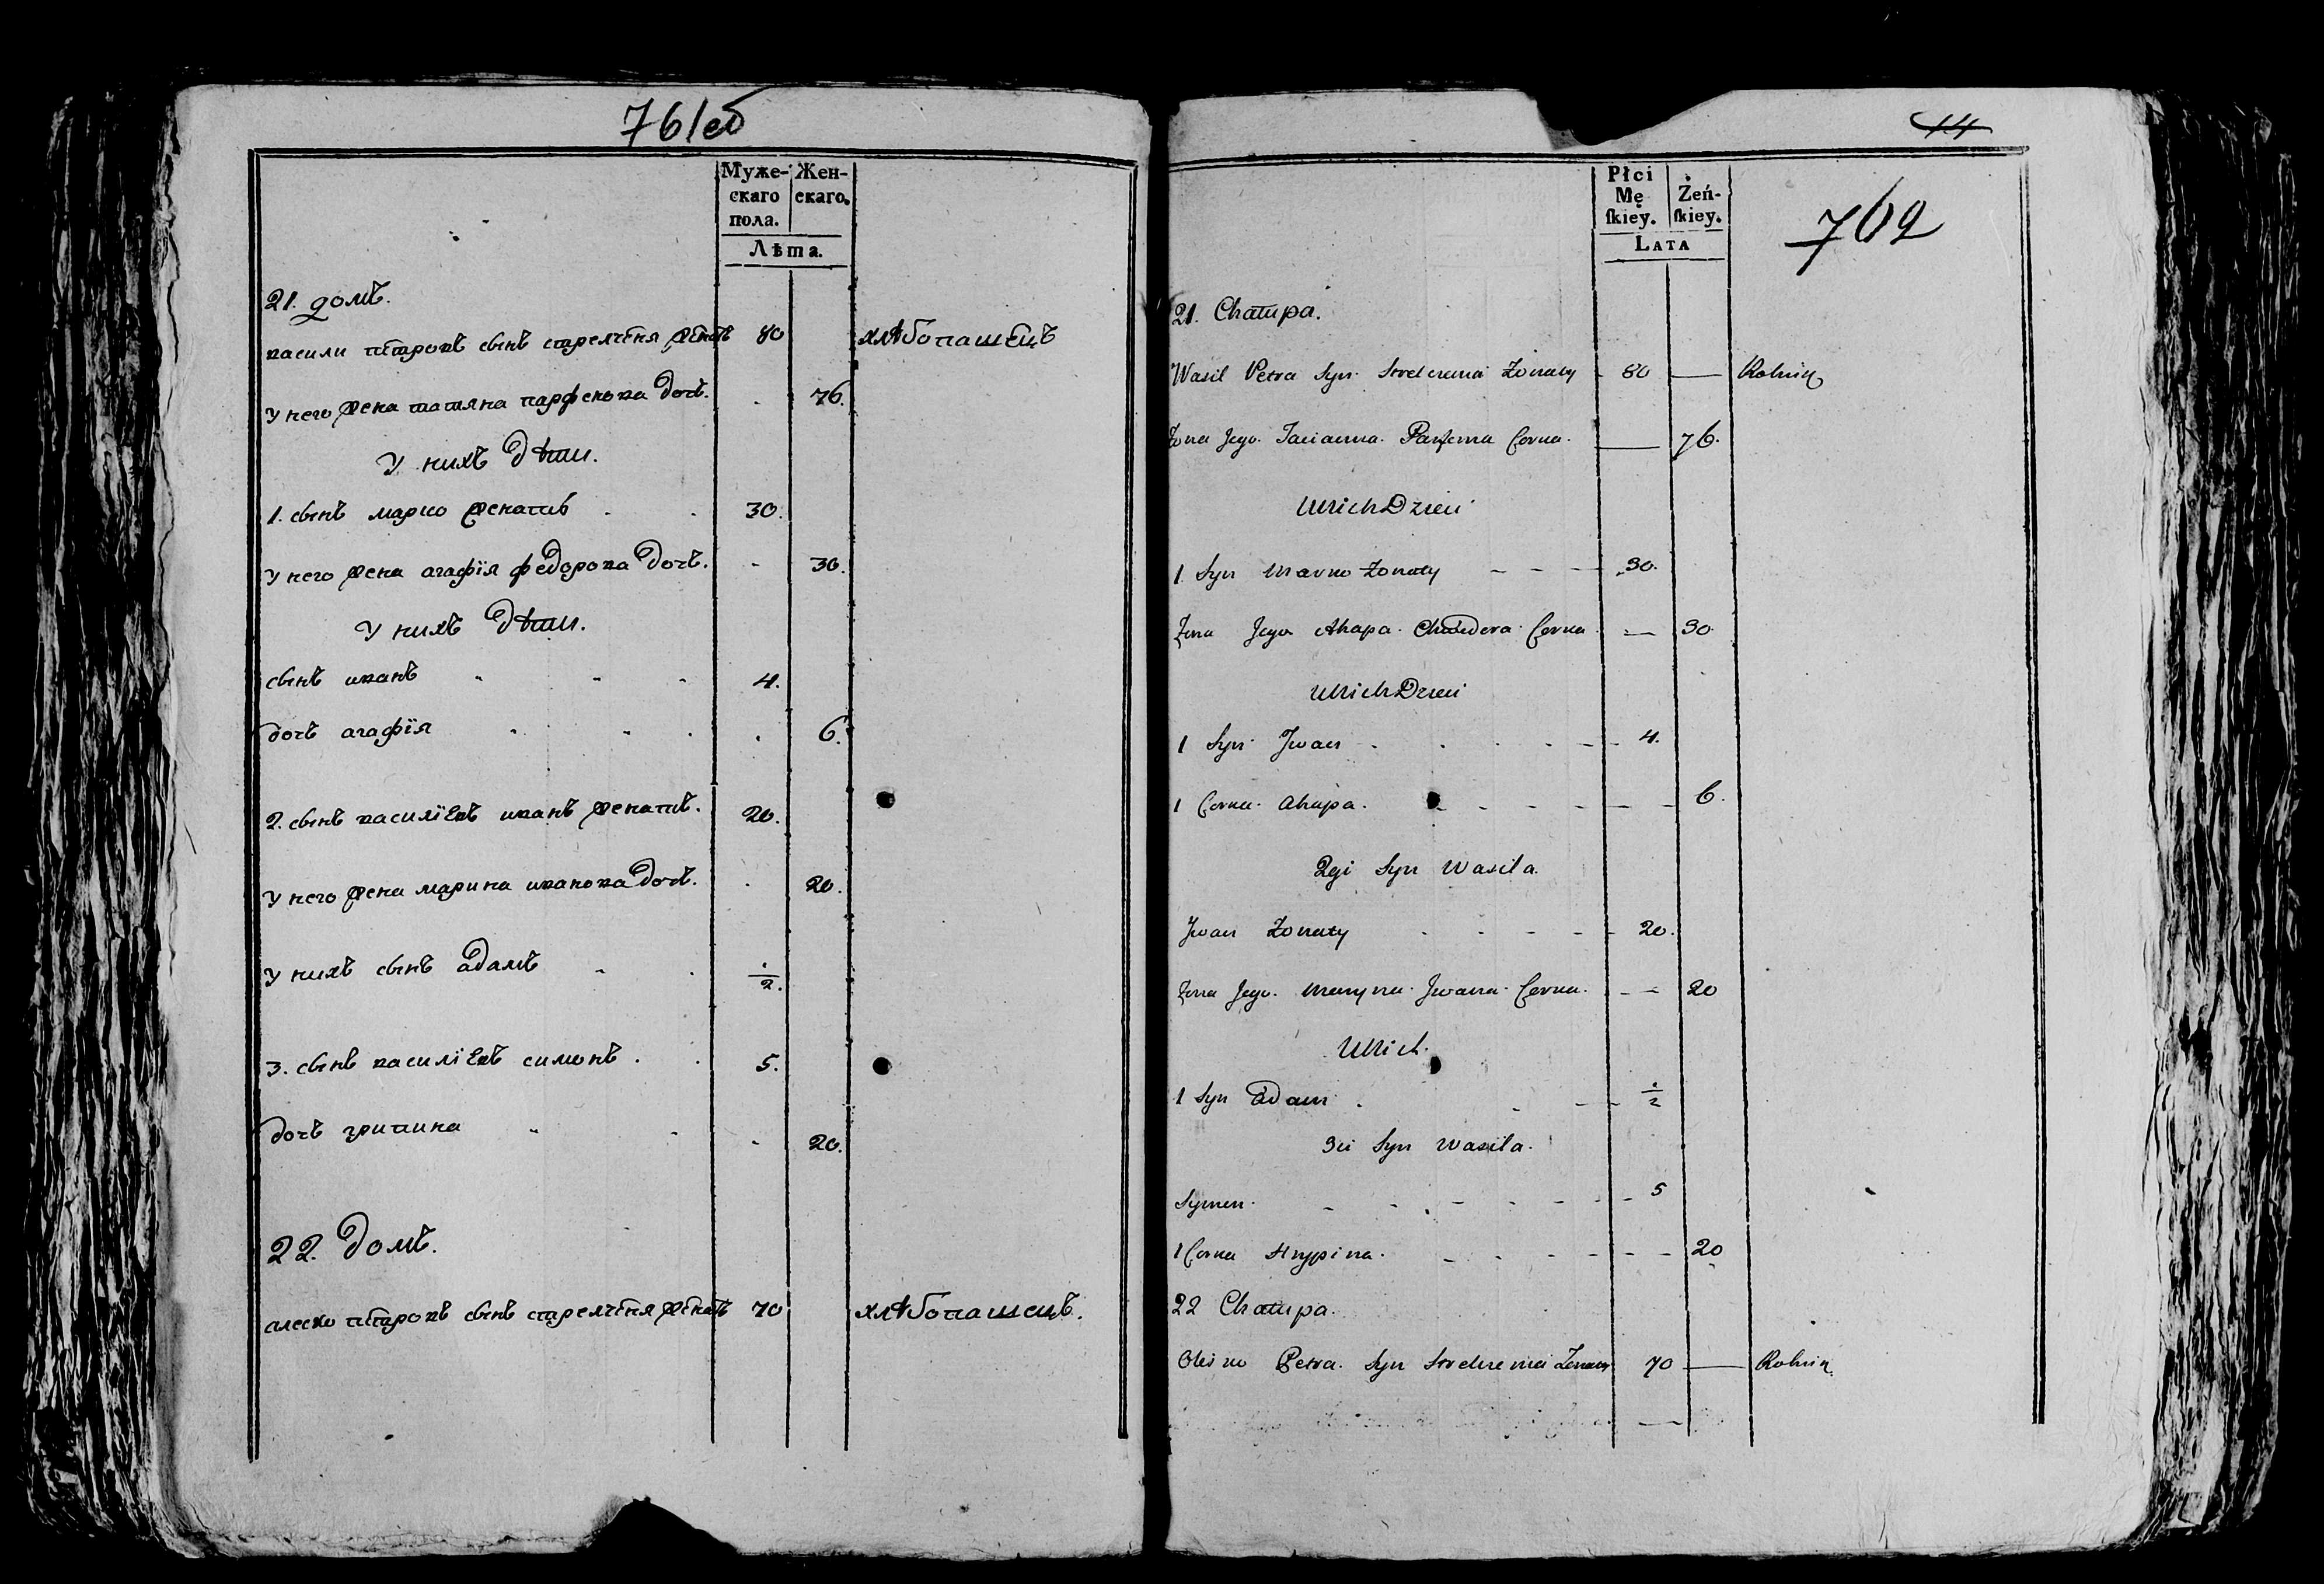 761об
Муже-
скаго
пола.
Жен-
скаго.
Лѣта.
21. домъ.
васили петровъ сынъ стрелченя женатъ 80 хлѣбопашецъ
У него жена татяна парфенова дочъ. 76.
У нихъ дѣти.
1. сынъ марко женатъ 30.
У него жена агафїя федорова дочъ. 30.
У нихъ дѣти.
сынъ иванъ 4.
дочъ агафїя 6.
2. сынъ василїевъ иванъ женатъ. 20.
У него жена марина иванова дочъ. 20.
У нихъ сынъ адамъ ./2.
3. сынъ василїевъ симонъ. 5.
дочъ грипина 20.
22. домъ.
алеско петровъ сынъ стрелченя женатъ 70 хлѣбопашецъ.
14
762
Płci
Mę
ſkiey.
Żeń-
ſkiey.
LATA
21. Chałupa.
Wasil Petra Syn Strelczenia Żonaty 80 — Rolnik
Żona Jego Tacianna Parfema Corka. — 76.
U nich Dzieci
1. Syn Marko Żonaty 30.
Żona Jego Ahapa Chwedora Corka — 30.
U nich Dzieci
1 Syn Jwan 4.
1 Corka Ahapa. 6.
2gi Syn Wasila.
Jwan Żonaty 20.
Żona Jego Maryna Jwana Corka. 20
U nich.
1 Syn Adam ./2
3ci Syn Wasila.
Symon 5
1 Corka Hrypina. 20
22 Chałupa.
Olesko Petra Syn Strelczenia Żonaty 70 — Rolnik